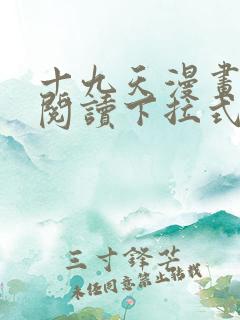 十九天漫畫
閱讀下拉式
三寸鋒芒
未經同意禁止轉載